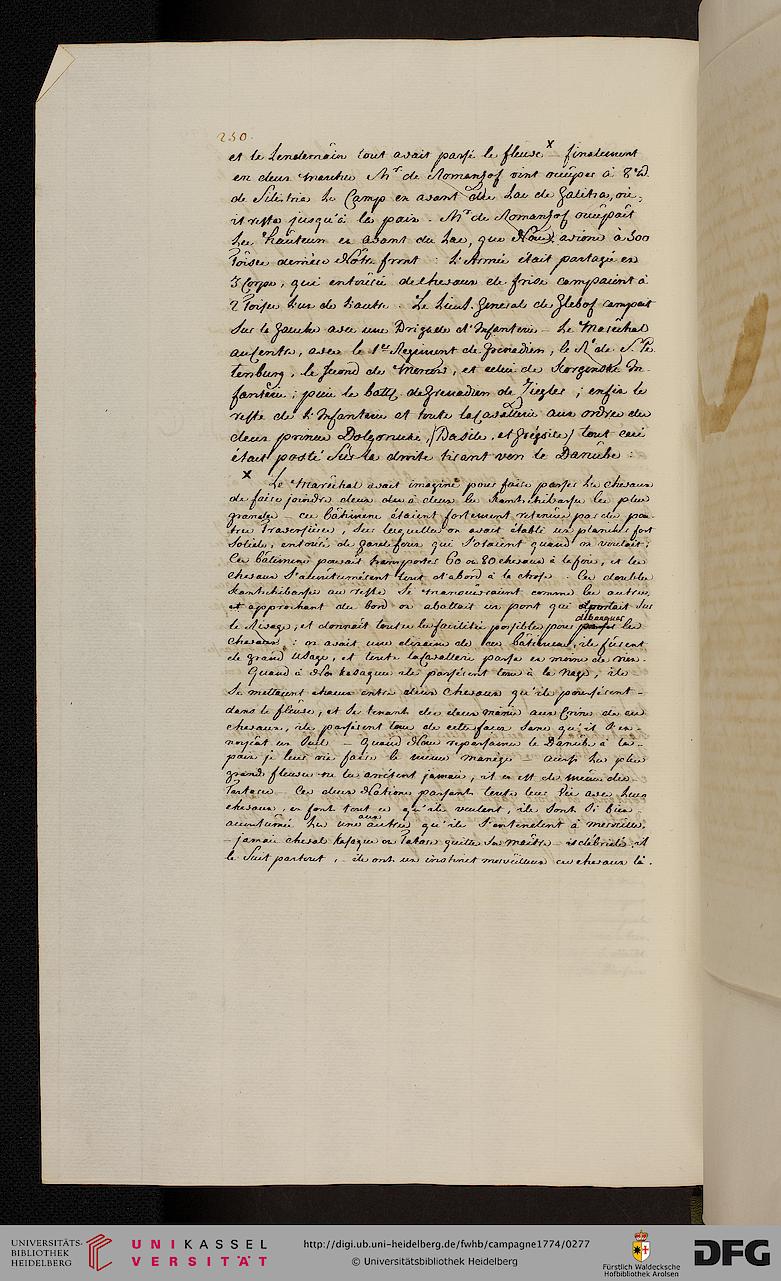 250.
et le Lendemain tout avait passé le fleuve x finalement
en deux marches Mr de Romanzof vint occuper à 8 W.
de Silistria le Camp en avant du Lac de Galitza, où
il resta jusqu'à la paix. Mr de Romanzof occupait
Les hauteurs en avant du Lac, que Nous avions à 300
Toises derrière Nôtre front : L'Armée était partagée en
3 Corps, qui entourés de chevaux de frise campaient à
2 Toises l'un de l'autre. Le Lieut. General de Glebof campait
Sur la gauche avec une Brigade d'Infanterie - Le Maréchal
au Centre, avec le 1er Regiment de Grenadiers, le R. de S. Pe
tersburg, le second de Moscou, et celui de In-
fanterie ; puis le batt. de Grenadiers de Ziegler ; enfin le
reste de l'Infanterie et toute la Cavallerie aux ordres des
deux princes Dolgorucki, (Basile, et Grégoire) tout ceci
était posté Sur la droite tirant vers le Danube :
x Le Maréchal avait imaginé pour faire passer les chevaux
de faire joindre deux à deux les Kantschibasses les plus
grandes - ces bâtimens étaient fortement retenus par des pou
tres Traversières, sur lesquelles on avait établi un plancher fort
solide, entouré de gardefoux qui s'otaient quand on voulait ;
Ces bâtimens pouvait transporter 60 ou 80 chevaux à la fois, et les
chevaux s'accoutumèrent tout d'abord à la chose. Ces doubles
Kantschibasses au reste se manoeuvraient comme les autres,
et approchant du bord on abattait un pont qui portait sur
le Rivage, et donnait toutes les facilités possibles pour debarquer les
chevaux : on avait une dizaine de ces bâtimens, ils fûrent
de grand Usage, et toute la Cavallerie passa en moins de rien.
Quand à Nos Kosaques ils passèrent tous à la Nage, ils
se mettaient chacun entre deux chevaux qu'ils poussèrent
dans le fleuve, et se tenant des deux mains aux Crins de ces
chevaux, ils passèrent tous de cette façon sans qu'il s'en
noyât un Seul - Quand Nous repassames le Danube à la
paix je leur vis faire le même manège - aussi les plus
grands fleuves ne les arrêtent jamais, il en est de même des
Tartares - Ces deux Nations passant toute leur Vie avec leurs
chevaux, en font tout ce qu'ils veulent, ils sont si bien
accoutumés les uns aux autres qu'ils s'entendent à merveille,
- jamais cheval Kosaque ou Tatare quitte son maître - il
le Suit partout, - ils ont un instinct merveilleux ces chevaux là.
UNIVERSITÄTS-
BIBLIOTHEK
HEIDELBERG
UNIKASSEL
VERSITÄT
http://digi.ub.uni-heidelberg.de/fwhb/campagne1774/0277
© Universitätsbibliothek Heidelberg
Fürstlich Waldecksche
Hofbibliothek Arolsen
DFG